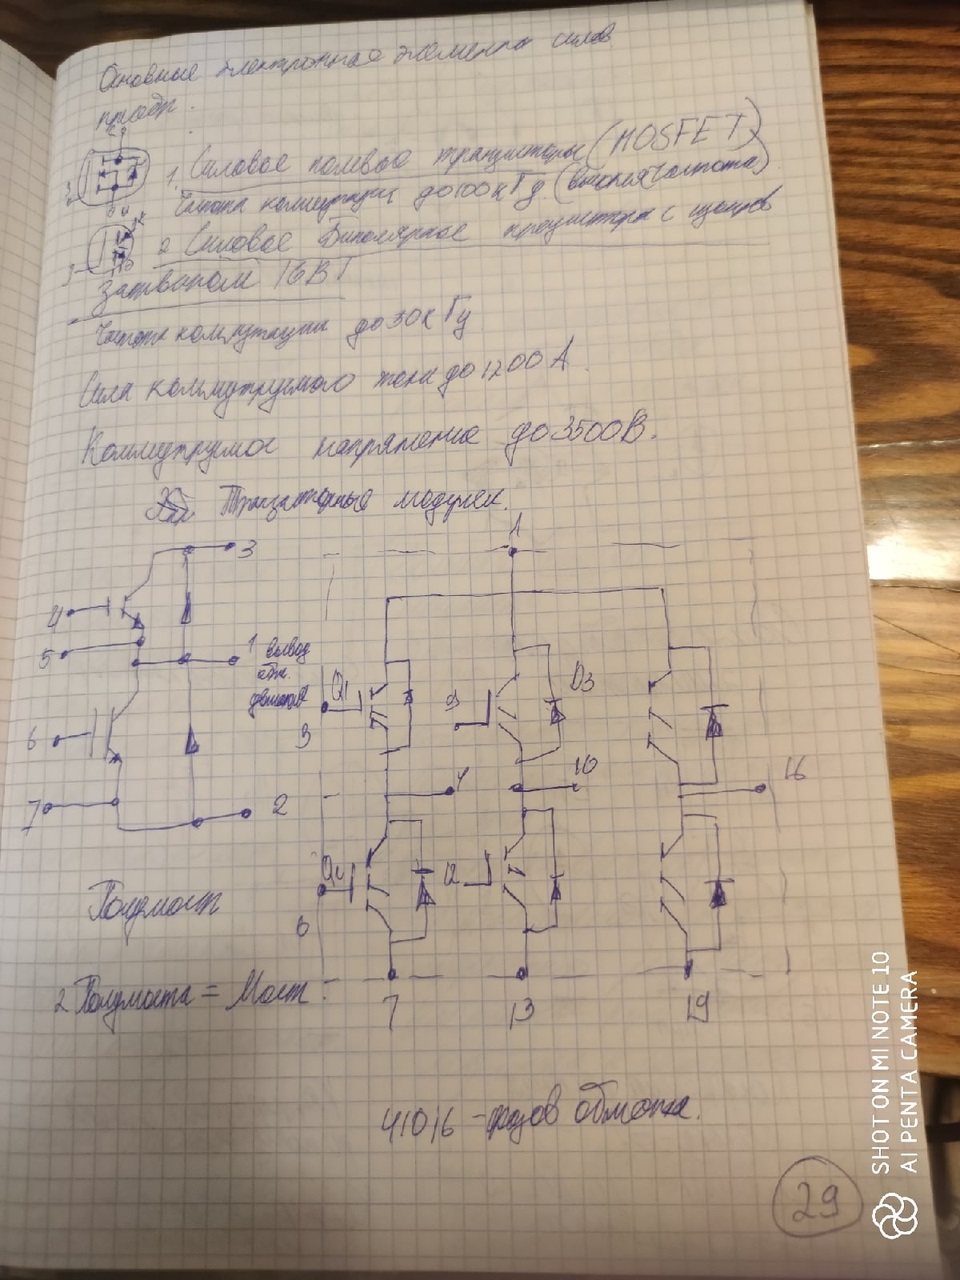 Основные электронные элементы силов
преобр.
1. Силовое полевые транзисторы (MOSFET)
Частота коммутации до 100 кГц (высокая частота)
3
2 Силовое Биполярное транзисторы с
затвором IGBT
Частота коммутации до 30 кГц
Сила коммутируемого тока до 1200 А.
Коммутируемое напряжение до 3500В.
Транзисторные модули.
3
4
5
1 вывод
обм.
двигателя
6
7
2
Полумост
2 Полумоста = Мост
1
Q1
3
9
D3
4
10
16
Q2
6
12
7
13
19
41016 - фазов обмотка.
29
SHOT ON MI NOTE 10
AI PENTA CAMERA